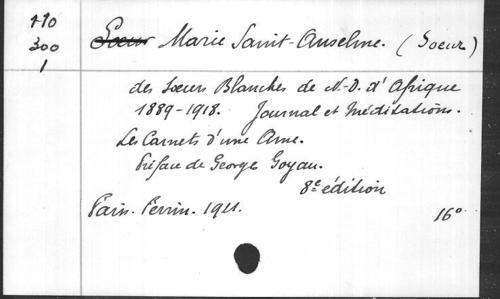 110
300
1
Soeur Marie Saint-Anselme. (Soeur)
des Soeurs Blanches de N.-D. d'Afrique
1889-1918. Journal et Méditations.
Les Carnets d'une Ame.
Préface de George Goyau.
8e édition
Paris. Perrin. 1921. 16°